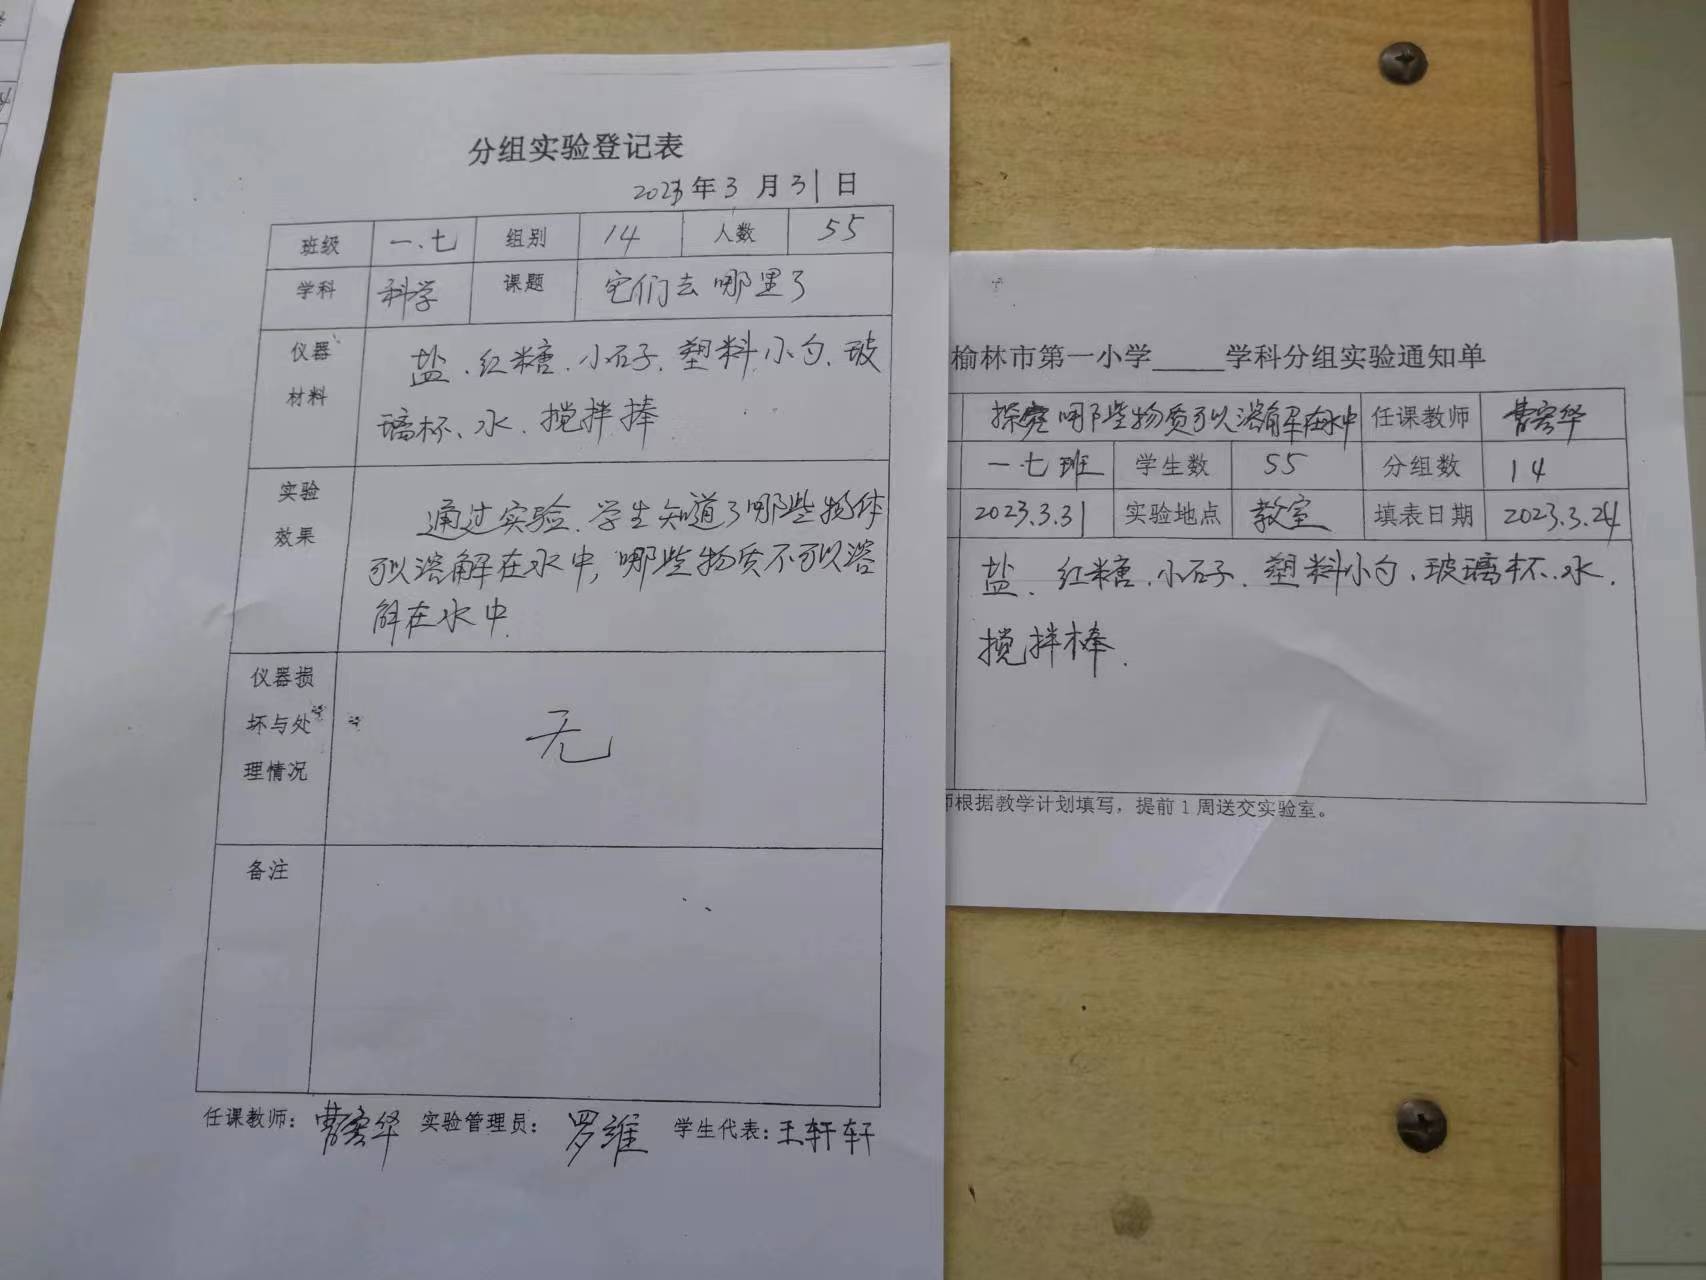 分组实验登记表
2023年3月31日
班级 一.七 组别 14 人数 55
学科 科学 课题 它们去哪里了
仪器
材料
盐、红糖、小石子、塑料小勺、玻
璃杯、水、搅拌捧
实验
效果
通过实验、学生知道了哪些物体
可以溶解在水中,哪些物质不可以溶
解在水中.
仪器损
坏与处
理情况
无
备注
任课教师: 曹 华 实验管理员: 罗维 学生代表: 王轩轩
榆林市第一小学_____学科分组实验通知单
探究哪些物质可以溶解在水中 任课教师 曹 华
一.七班 学生数 55 分组数 14
2023.3.31 实验地点 教室 填表日期 2023.3.24
盐、红糖、小石子、塑料小勺、玻璃杯、水、
搅拌棒.
师根据教学计划填写，提前1周送交实验室。